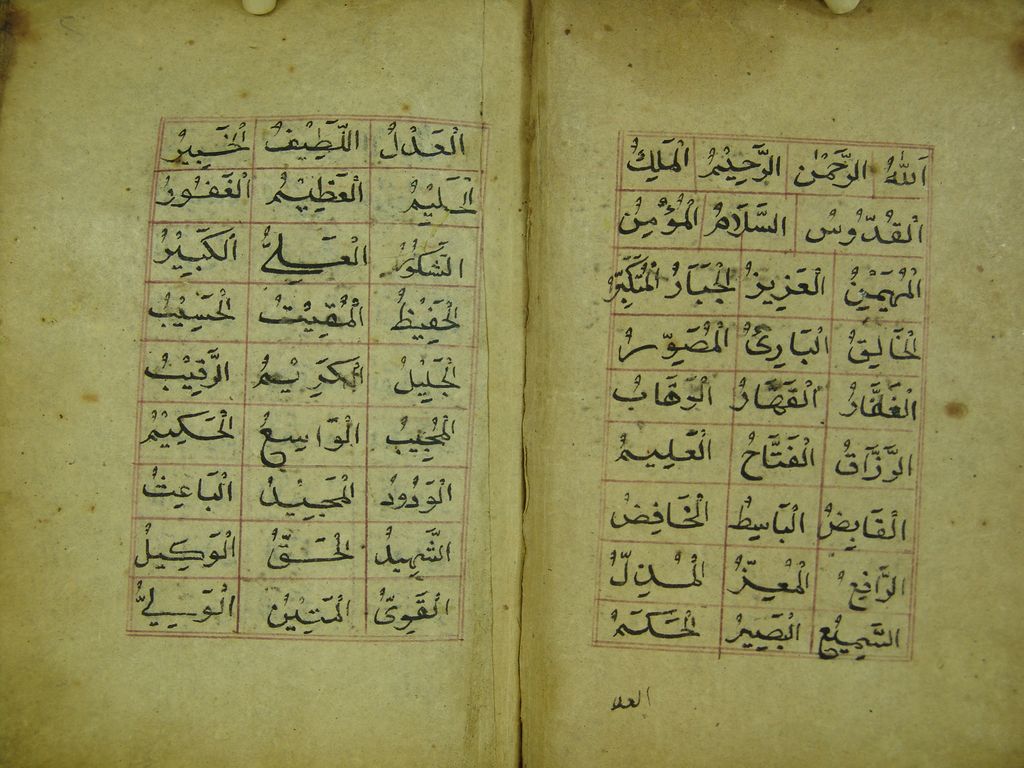 اَللّٰهُ الرَّحْمٰنُ الرَّحِيْمُ الْمَلِكُ
اَلْقُدُّوسُ السَّلَامُ الْمُؤْمِنُ
الْمُهَيْمِنُ الْعَزِيزُ الْجَبَّارُ الْمُتَكَبِّرُ
الْخَالِقُ الْبَارِئُ الْمُصَوِّرُ
الْغَفَّارُ الْقَهَّارُ الْوَهَّابُ
الرَّزَّاقُ الْفَتَّاحُ الْعَلِيمُ
الْقَابِضُ الْبَاسِطُ الْخَافِضُ
الرَّافِعُ الْمُعِزُّ الْمُذِلُّ
السَّمِيعُ الْبَصِيرُ الْحَكَمُ
العد
الْعَدْلُ اللَّطِيْفُ الْخَبِيرُ
الْحَلِيْمُ الْعَظِيْمُ الْغَفُورُ
الشَّكُورُ الْعَلِيُّ اَلْكَبِيْرُ
الْحَفِيْظُ الْمُقِيْتُ الْحَسِيْبُ
الْجَلِيْلُ الْكَرِيْمُ الرَّقِيْبُ
الْمُجِيْبُ الْوَاسِعُ الْحَكِيْمُ
الْوَدُودُ الْمَجِيْدُ الْبَاعِثُ
الشَّهِيْدُ الْحَقُّ الْوَكِيْلُ
الْقَوِيُّ الْمَتِيْنُ الْوَلِيُّ